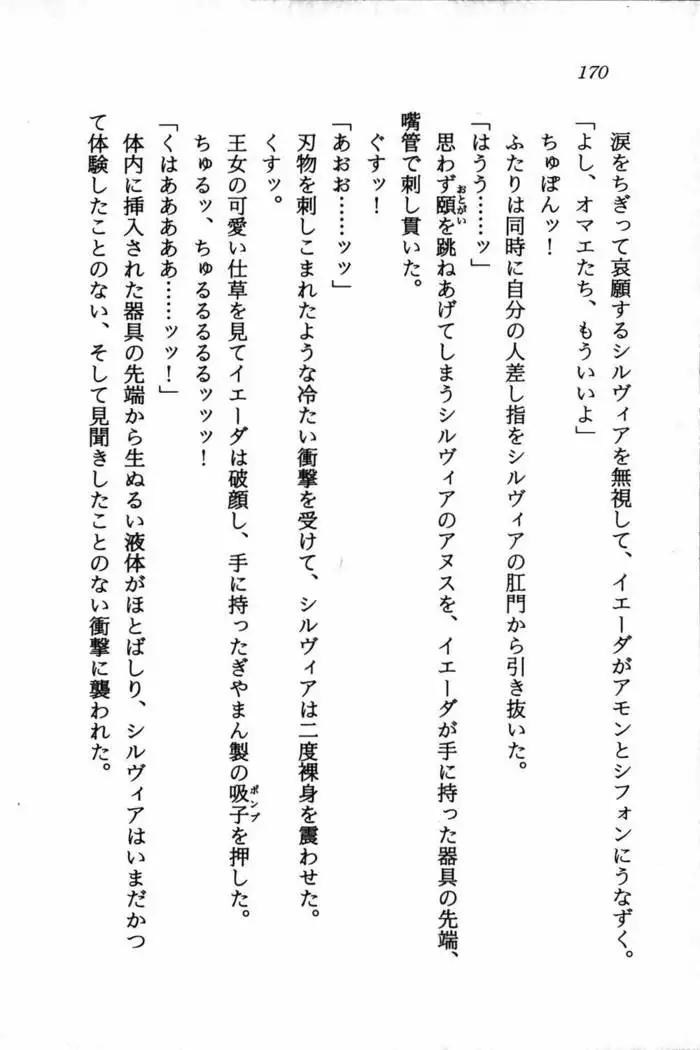 170
涙をちぎって哀願するシルヴィアを無視して、イエーダがアモンとシフォンにうなずく。
「よし、オマエたち、もういいよ」
ちゅぽんッ！
ふたりは同時に自分の人差し指をシルヴィアの肛門から引き抜いた。
「はうう……ッ」
思わず頤おとがいを跳ねあげてしまうシルヴィアのアヌスを、イエーダが手に持った器具の先端、
嘴管で刺し貫いた。
ぐすッ！
「あおお……ッッ」
刃物を刺しこまれたような冷たい衝撃を受けて、シルヴィアは二度裸身を震わせた。
くすッ。
王女の可愛い仕草を見てイエーダは破顔し、手に持ったぎやまん製の吸子ポンプを押した。
ちゅるッ、ちゅるるるるるッッッ！
「くはああああああ……ッッ！」
体内に挿入された器具の先端から生ぬるい液体がほとばしり、シルヴィアはいまだかつ
て体験したことのない、そして見聞きしたことのない衝撃に襲われた。